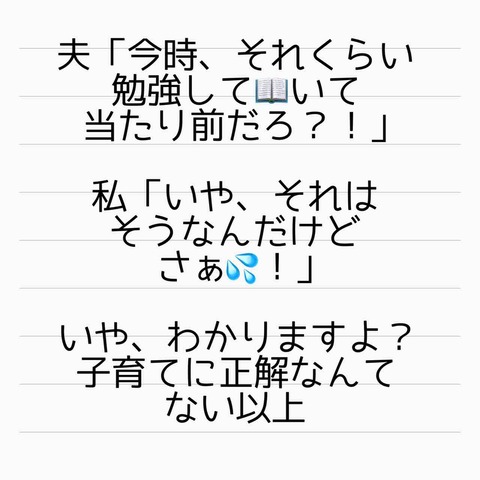 夫「今時、それくらい
勉強して📖いて
当たり前だろ？！」
私「いや、それは
そうなんだけど
さぁ💦！」
いや、わかりますよ？
子育てに正解なんて
ない以上